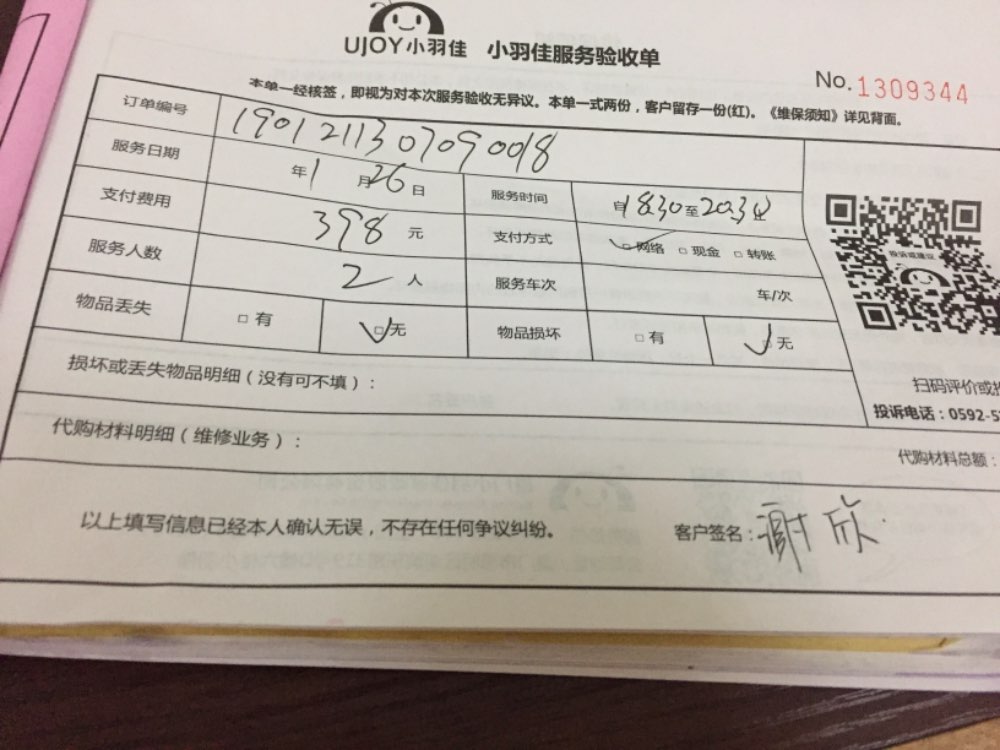 UJOY小羽佳 小羽佳服务验收单
No.1309344
本单一经核签，即视为对本次服务验收无异议。本单一式两份，客户留存一份(红)。《维保须知》详见背面。
订单编号 1901211307090018
服务日期 年1月26日 服务时间 自1830至2030
支付费用 398元 支付方式 □网络 □现金 □转账
服务人数 2人 服务车次 车/次
物品丢失 □有 □无 物品损坏 □有 □无
投诉或建议
扫码评价或
损坏或丢失物品明细（没有可不填）：
投诉电话：0592-5
代购材料明细（维修业务）：
代购材料总额：
以上填写信息已经本人确认无误，不存在任何争议纠纷。 客户签名：谢欣